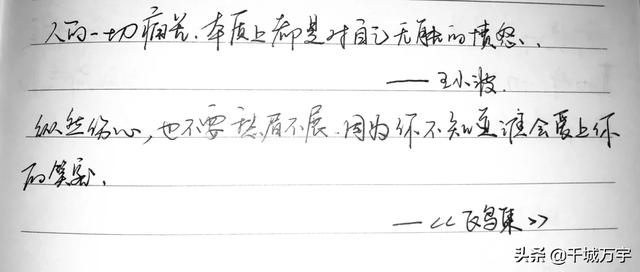 人的一切痛苦,本质上都是对自己无能的愤怒、
——王小波.
纵然伤心,也不要愁眉不展.因为你不知道谁会爱上你
的笑容.
—《飞鸟集》
头条 @千城万宇